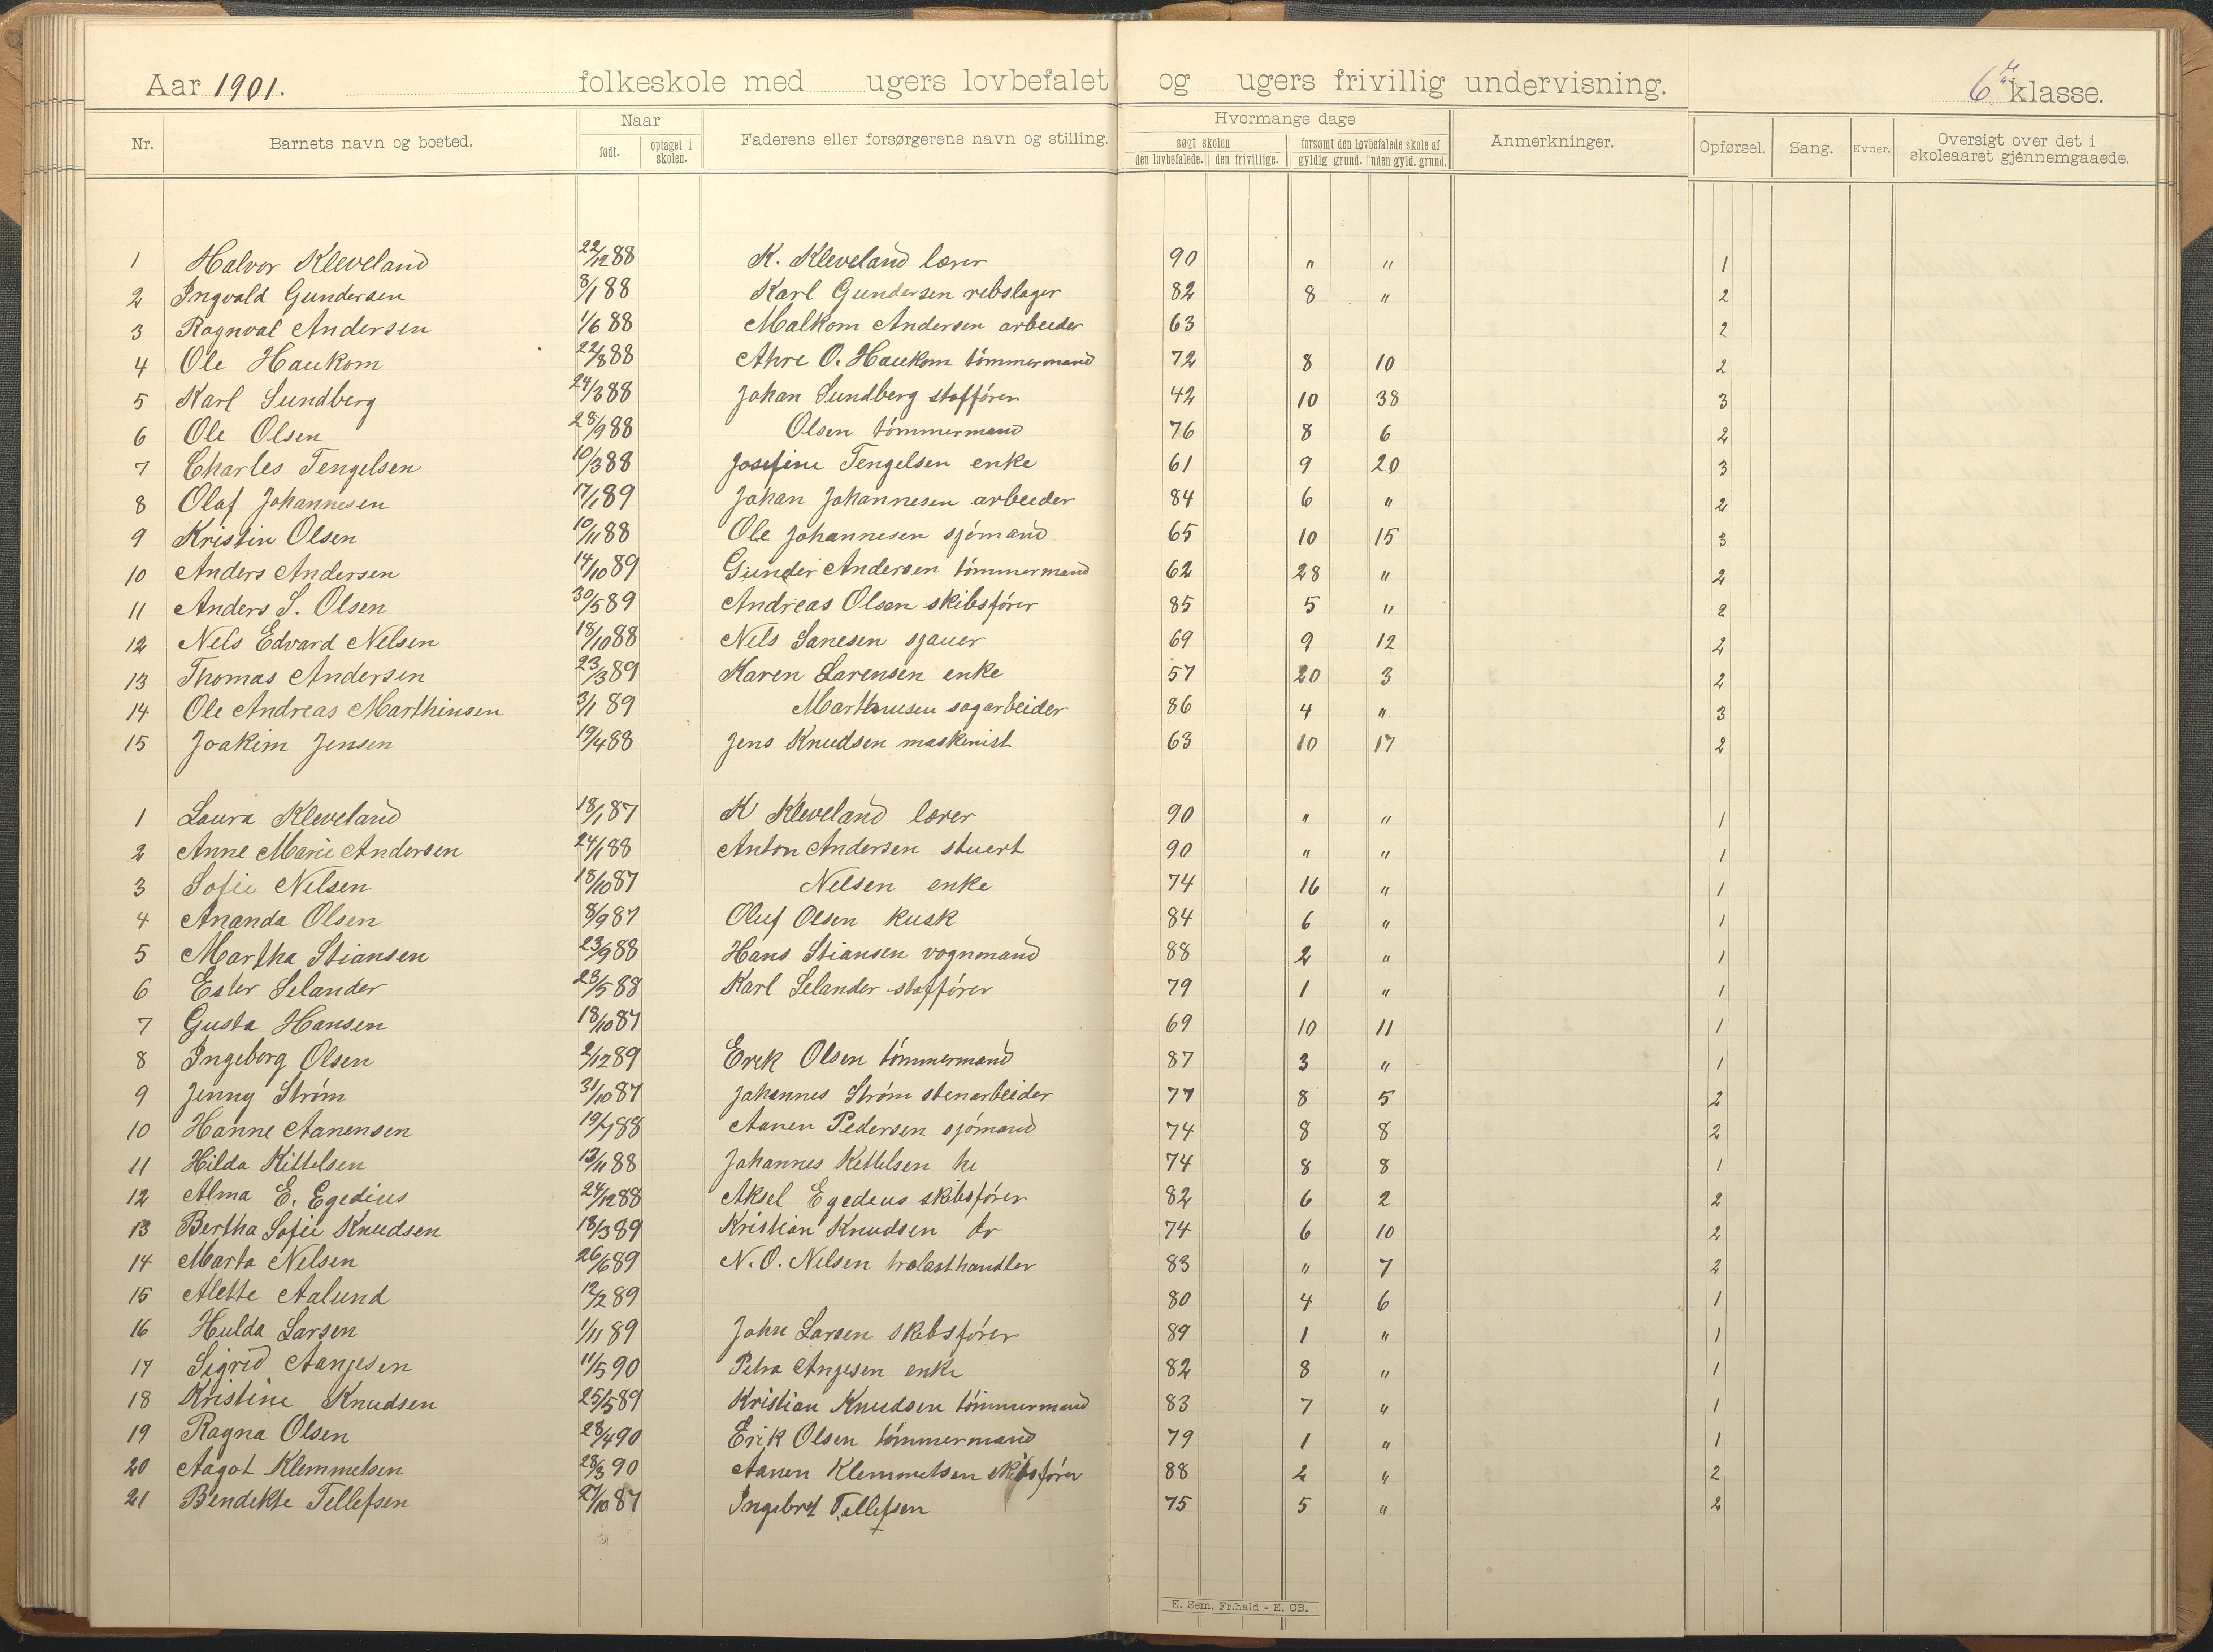 Aar 1901. folkeskole med ugers lovbefalet og ugers frivillig undervisning. 6te klasse.
Nr. Barnets navn og bosted. Naar født. optaget i skolen. Faderens eller forsørgerens navn og stilling. Hvormange dage søgt skolen den lovbefalede. den frivillige. forsømt den lovbefalede skole af gyldig grund. uden gyld. grund. Anmerkninger. Opførsel. Sang. Evner. Oversigt over det i skoleaaret gjennemgaaede.
1 Halvor Kleveland 22/12 88 K. Kleveland lærer 90 " " 1
2 Ingvald Gundersen 8/1 88 Karl Gundersen rebslager 82 8 " 2
3 Ragnval Andersen 1/6 88 Malkom Andersen arbeider 63 2
4 Ole Haukom 22/8 88 O. Haukom tømmermand 72 8 10 2
5 Karl Sundberg 24/3 88 Johan Sundberg staffører 42 10 38 3
6 Ole Olsen 28/9 88 Olsen tømmermand 76 8 6 2
7 Charles Tengelsen 10/3 88 Josefine Tengelsen enke 61 9 20 3
8 Olaf Johannesen 17/1 89 Johan Johannesen arbeider 84 6 " 2
9 Kristin Olsen 10/11 88 Ole Johannesen sjømand 65 10 15 3
10 Anders Andersen 14/10 89 Gunder Andersen tømmermand 62 28 " 2
11 Anders S. Olsen 30/5 89 Andreas Olsen skibsfører 85 5 " 2
12 Nels Edvard Nelsen 18/10 88 Nels Sanesen sjauer 69 9 12 2
13 Thomas Andersen 23/3 89 Karen Larensen enke 57 20 3 2
14 Ole Andreas Marthinsen 3/1 89 Marthinusen sagarbeider 86 4 " 3
15 Joakim Jensen 19/4 88 Jens Knudsen maskinist 63 10 17 2
1 Laura Kleveland 18/1 87 K Kleveland lærer 90 " " 1
2 Anne Marie Andersen 24/1 88 Anton Andersen stuert 90 " " 1
3 Sofie Nelsen 18/10 87 Nelsen enke 74 16 " 1
4 Ananda Olsen 8/9 87 Oluf Olsen kusk 84 6 " 1
5 Martha Stiansen 23/9 88 Hans Stiansen vognmand 88 2 " 1
6 Ester Selander 23/5 88 Karl Selander staffører 79 1 " 1
7 Gusta Hansen 18/10 87 69 10 11 1
8 Ingeborg Olsen 2/12 89 Erek Olsen tømmermand 87 3 " 1
9 Jenny Strøm 31/10 87 Johannes Strøm stenarbeider 77 8 5 2
10 Hanne Aanensen 19/7 88 Aanen Pedersen sjømand 74 8 8 2
11 Hilda Kittelsen 13/11 88 Johannes Kettelsen 74 8 8 1
12 Alma E. Egedius 24/12 88 Aksel Egedeus skibsfører 82 6 2 2
13 Bertha Sofie Knudsen 18/3 89 Kristian Knudsen do 74 6 10 2
14 Marta Nelsen 26/6 89 N. O. Nelsen trælasthandler 83 " 7 2
15 Alette Aalund 12/2 89 80 4 6 1
16 Hulda Larsen 1/11 89 John Larsen skibsfører 89 1 " 1
17 Sigrid Aanjesen 11/5 90 Petra Anjesen enke 82 8 " 1
18 Kristine Knudsen 25/5 89 Kristian Knudsen tømmermand 83 7 " 1
19 Ragna Olsen 28/4 90 Erik Olsen tømmermand 79 1 " 1
20 Aagot Klemmetsen 28/3 90 Aanen Klemmetsen skibsfører 88 2 " 2
21 Bendekte Tellefsen 27/10 87 Ingebret Tellefsen 75 5 " 2
E. Sem, Fr.hald - E. CB.